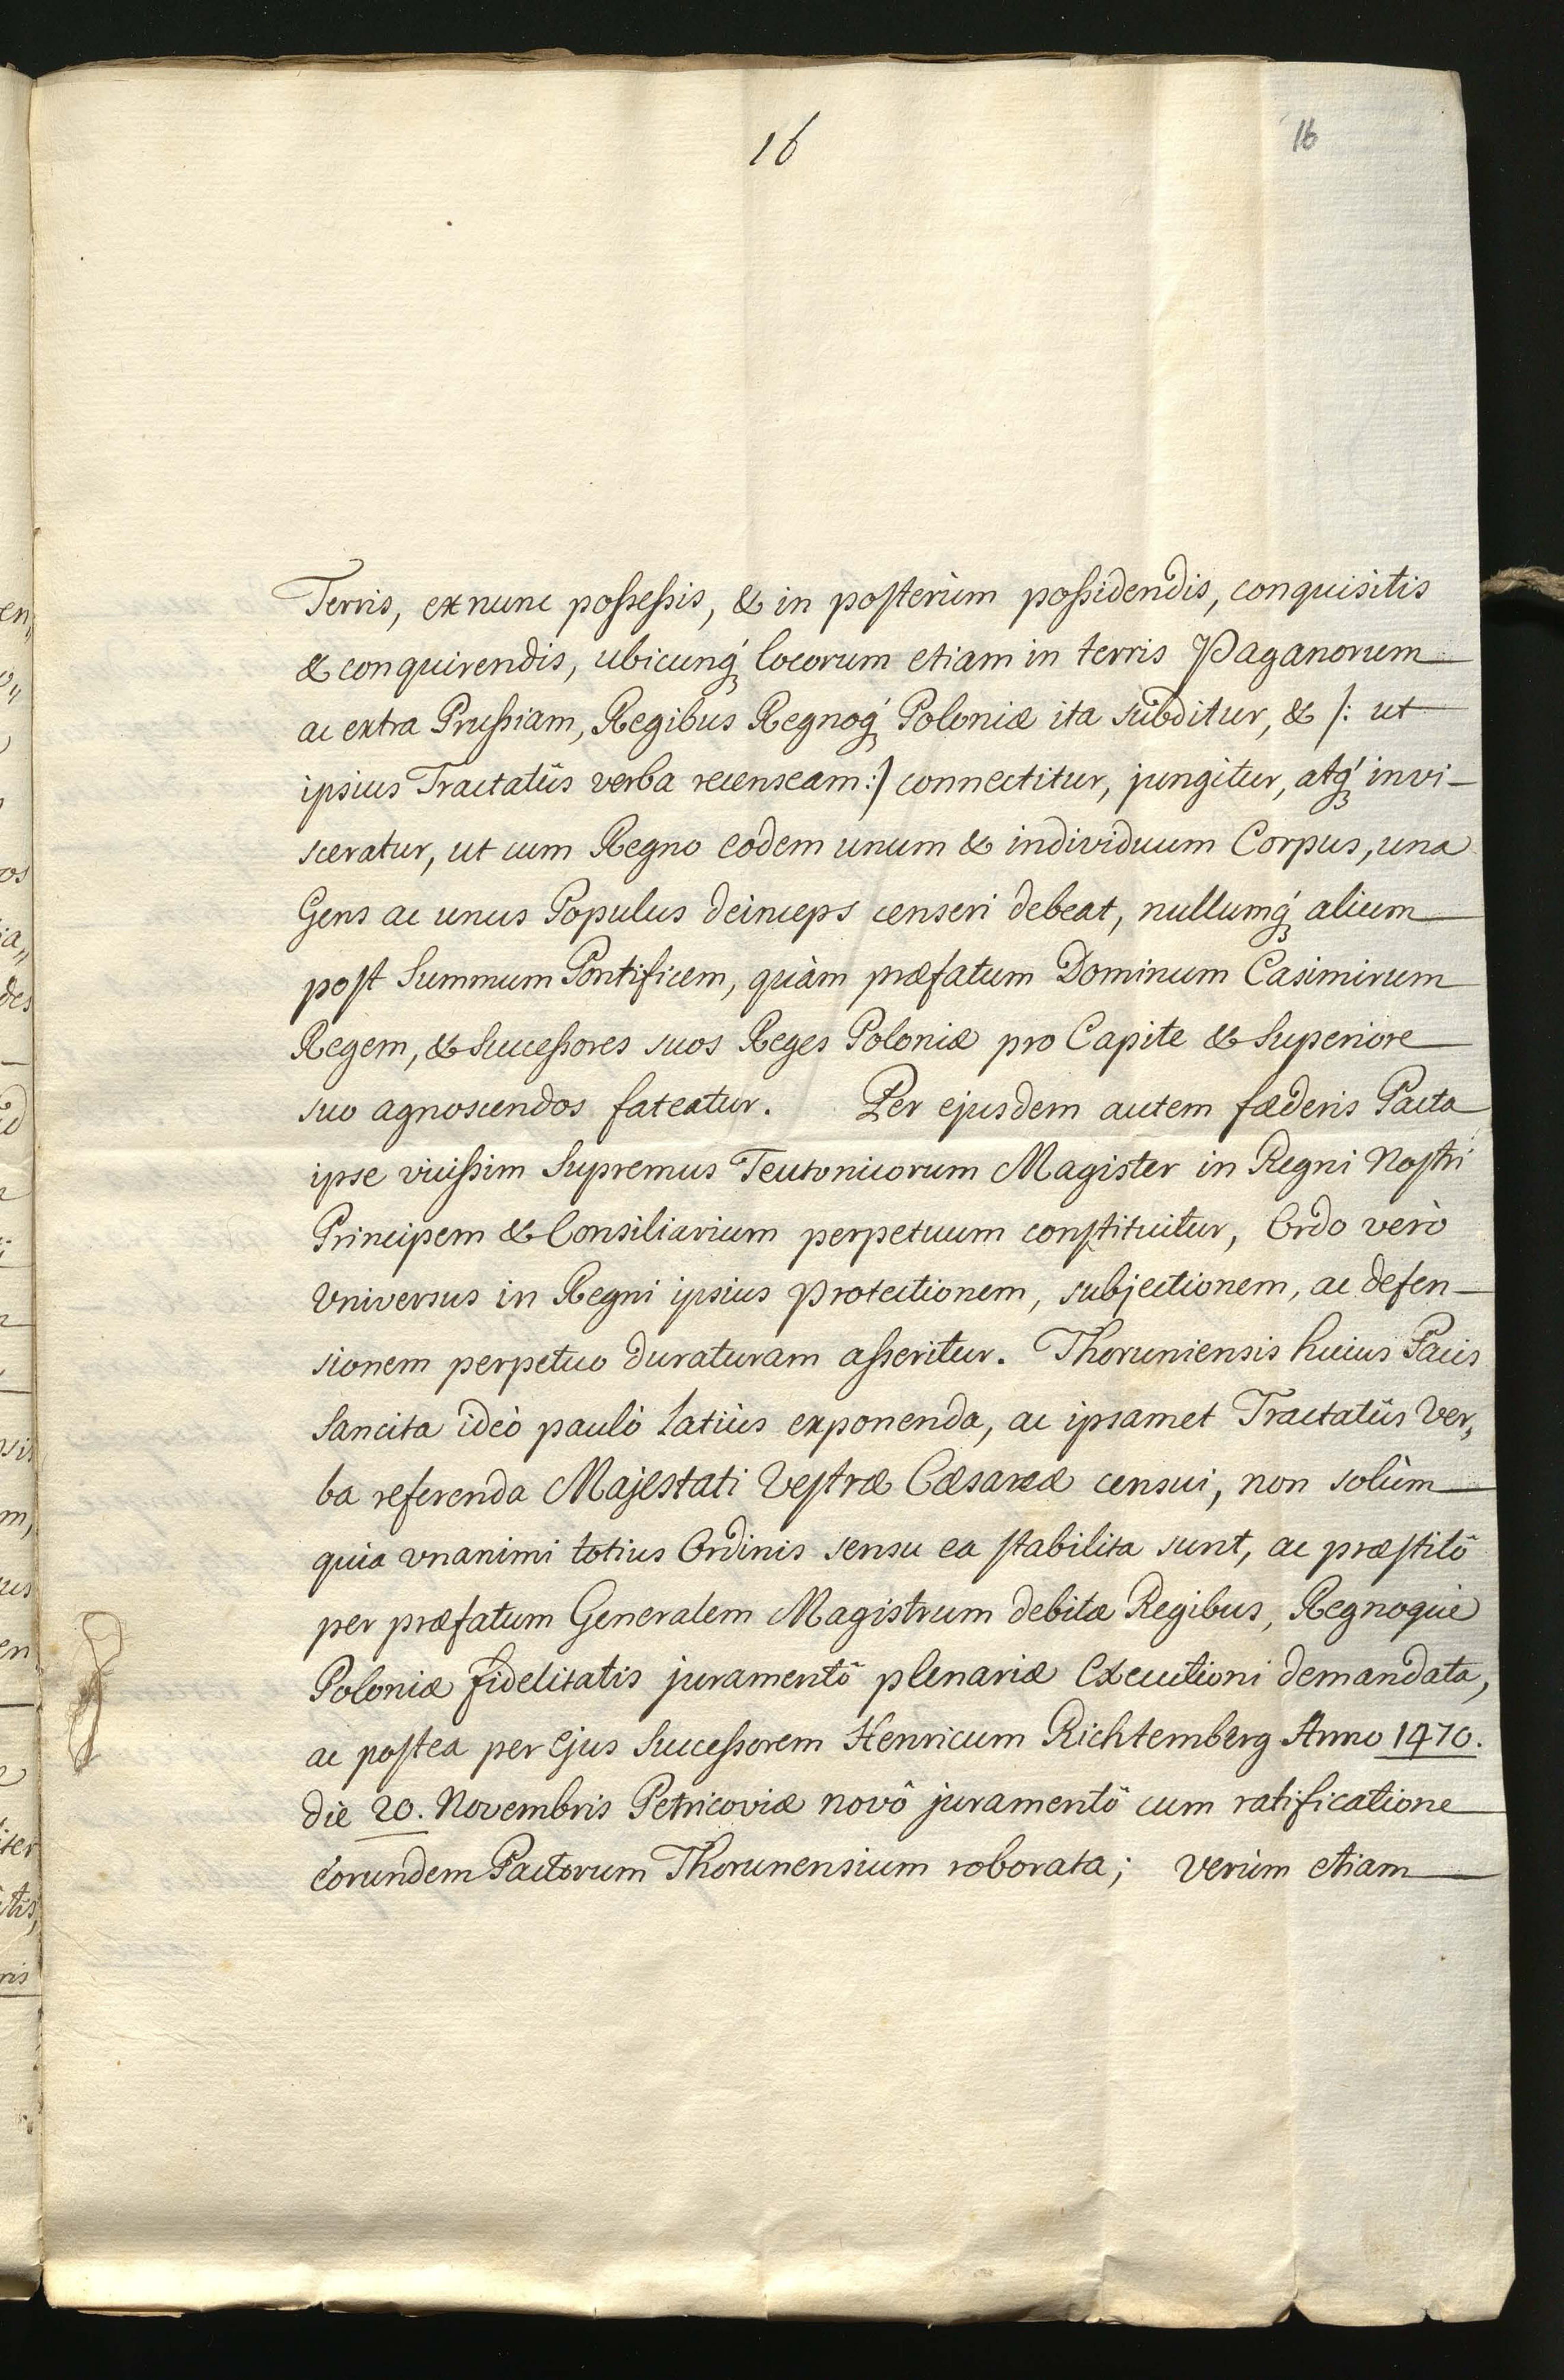 16
16
Terris, ex nunc possessis, & in posterùm possidendis, conquisitis
& conquirendis, ubicunq́ locorum etiam in terris Paganorum
ac extra Prussiam, Regibus Regnoq́ Poloniæ ita subditur, & /: ut
ipsius Tractatûs verba recenseam :/ connectitur, jungitur, atq́ invi-
sceratur, ut cum Regno eodem unum & individuum Corpus, una
Gens ac unus Populus deinceps censeri debeat, nullumq́ alium
post Summum Pontificem, quàm præfatum Dominum Casimirum
Regem, & Successores suos Reges Poloniæ pro Capite & Superiore
suo agnoscendos fateatur. Per ejusdem autem fæderis Pacta
ipse vicissim Supremus Teutonicorum Magister in Regni Nostri
Principem & Consiliarium perpetuum constituitur, Ordo verò
Universus in Regni ipsius Protectionem, subjectionem, ac defen-
sionem perpetuo duraturam asseritur. Thoruniensis huius Pacis
Sancita ideò paulò latiùs exponenda, ac ipsamet Tractatûs Ver,,
ba referenda Majestati Vestræ Cæsareæ censui, non solùm
quia vnanimi totius Ordinis sensu ea stabilita sunt, ac præstitô
per præfatum Generalem Magistrum debitæ Regibus, Regnoque
Poloniæ fidelitatis juramentô plenariæ Executioni demandata,
ac postea per Ejus Successorem Henricum Richtemberg Anno 1470.
die 20. Novembris Petricoviæ novô juramentô cum ratificatione
Eorundem Pactorum Thorunensium roborata; Verùm etiam
en,,
os
ia,,
des
m,
en
iter
ris